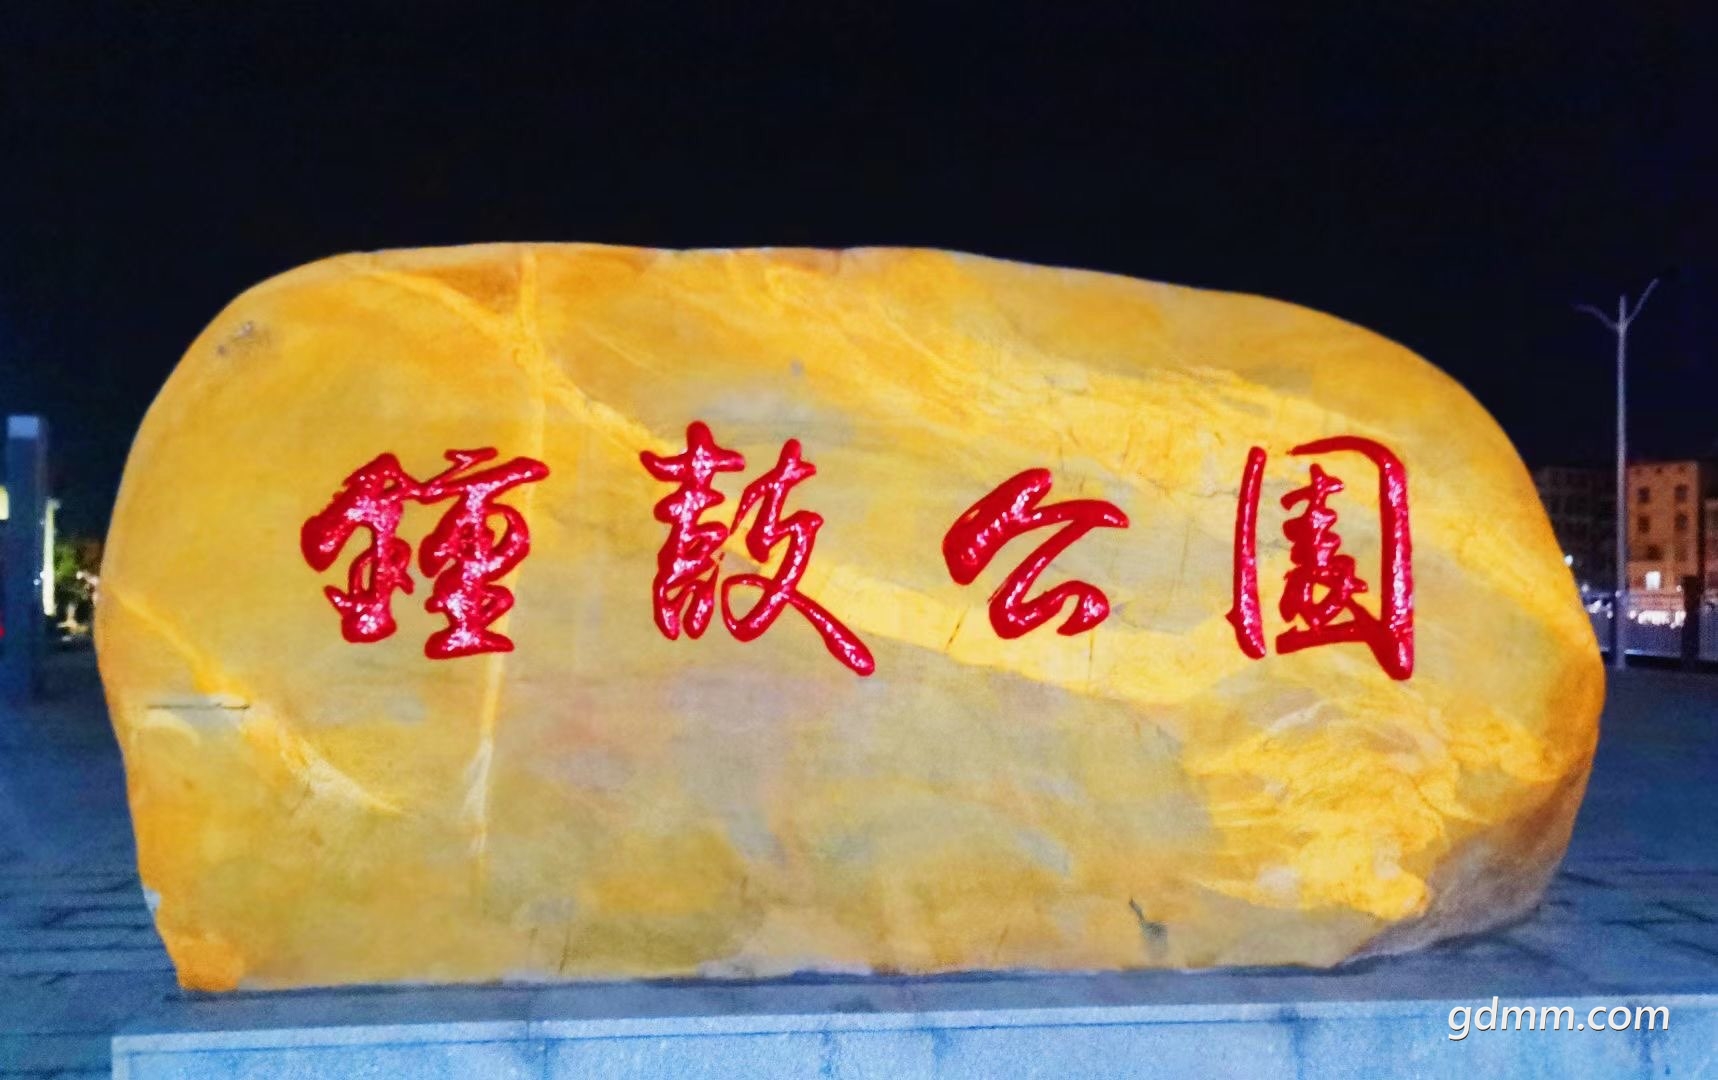 鍾鼓公園
gdmm.com